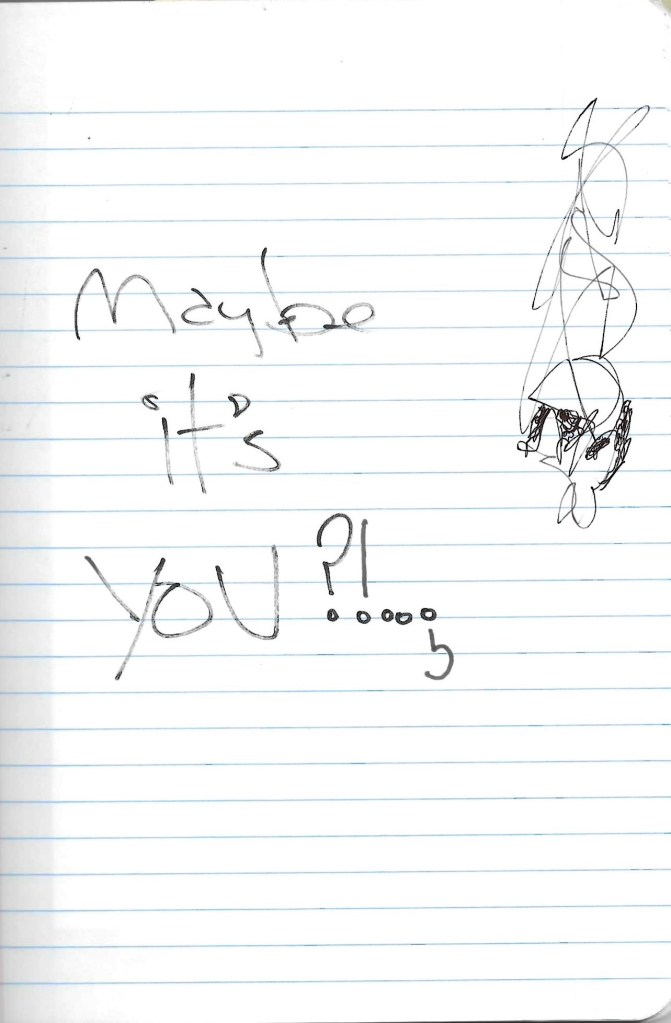 Maybe
it's
YOU?!.....,